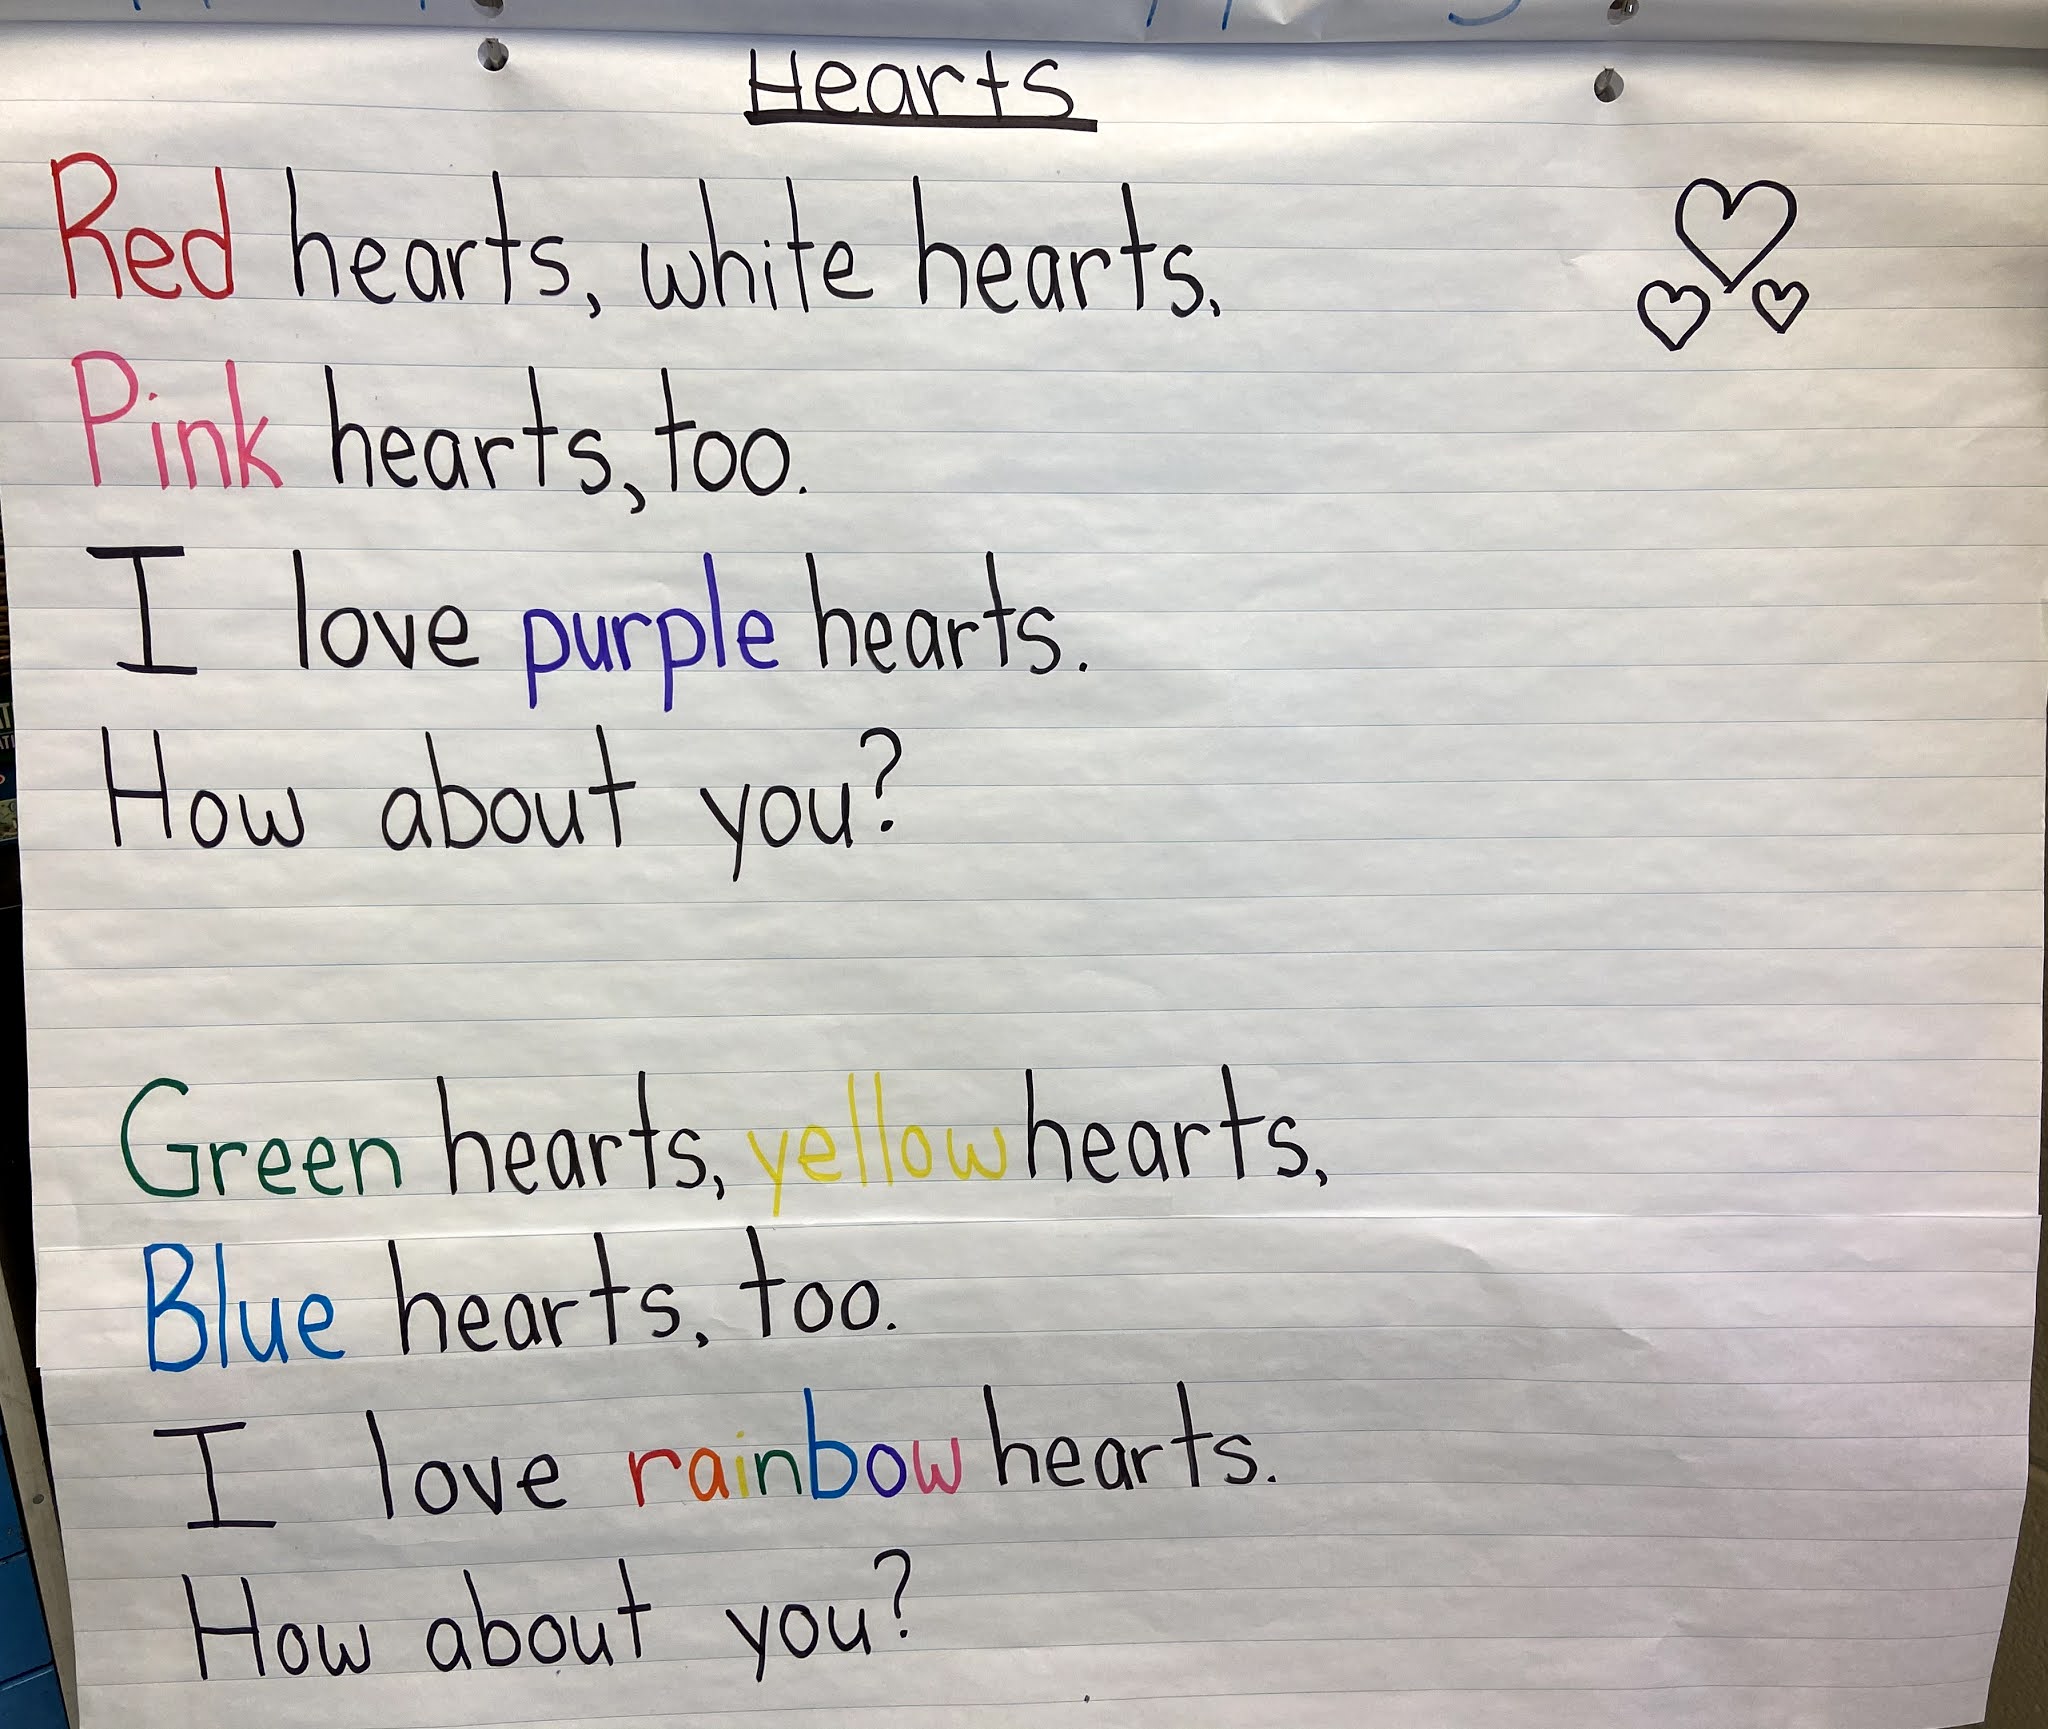 Hearts
Red hearts, white hearts,
Pink hearts, too.
I love purple hearts.
How about you?
Green hearts, yellow hearts,
Blue hearts, too.
I love rainbow hearts.
How about you?